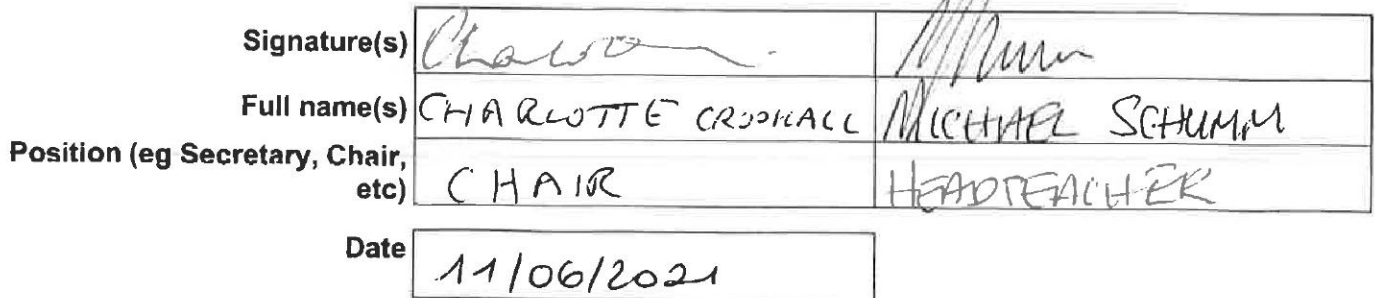 Signature(s)
Full name(s) CHARLOTTE CROOKALL MICHAEL SCHUMM
Position (eg Secretary, Chair,
etc) CHAIR HEADTEACHER
Date 11/06/2021